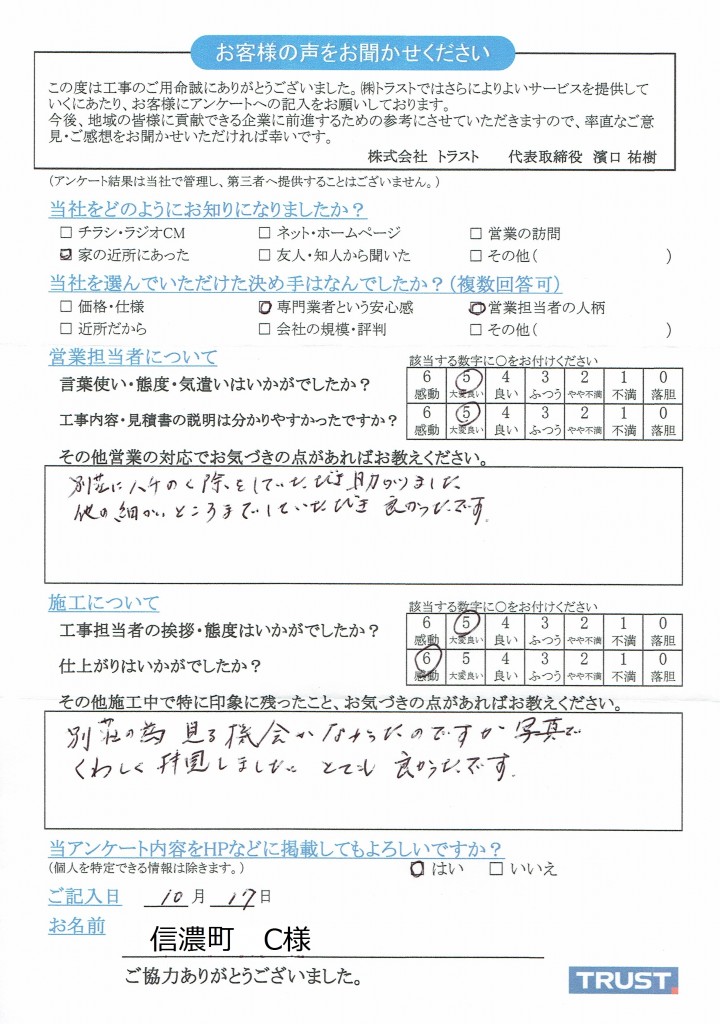 お客様の声をお聞かせください
この度は工事のご用命誠にありがとうございました。㈱トラストではさらによりよいサービスを提供して
いくにあたり、お客様にアンケートへの記入をお願いしております。
今後、地域の皆様に貢献できる企業に前進するための参考にさせていただきますので、率直なご意
見・ご感想をお聞かせいただければ幸いです。
株式会社 トラスト 代表取締役 濱口 祐樹
(アンケート結果は当社で管理し、第三者へ提供することはございません。)
当社をどのようにお知りになりましたか?
□ チラシ・ラジオCM □ ネット・ホームページ □ 営業の訪問
□ 家の近所にあった □ 友人・知人から聞いた □ その他( )
当社を選んでいただけた決め手はなんでしたか?(複数回答可)
□ 価格・仕様 □ 専門業者という安心感 □ 営業担当者の人柄
□ 近所だから □ 会社の規模・評判 □ その他( )
営業担当者について 該当する数字に○をお付けください
言葉使い・態度・気遣いはいかがでしたか?
6 5 4 3 2 1 0
感動 大変良い 良い ふつう やや不満 不満 落胆
工事内容・見積書の説明は分かりやすかったですか?
6 5 4 3 2 1 0
感動 大変良い 良い ふつう やや不満 不満 落胆
その他営業の対応でお気づきの点があればお教えください。
別荘にハチのく除をしていただき助かりました
他の細かいところまでしていただき 良かったです。
施工について 該当する数字に○をお付けください
工事担当者の挨拶・態度はいかがでしたか?
6 5 4 3 2 1 0
感動 大変良い 良い ふつう やや不満 不満 落胆
仕上がりはいかがでしたか?
6 5 4 3 2 1 0
感動 大変良い 良い ふつう やや不満 不満 落胆
その他施工中で特に印象に残ったこと、お気づきの点があればお教えください。
別荘の為 見る機会がなかったのですが 写真で
くわしく拝見しました とても 良かったです。
当アンケート内容をHPなどに掲載してもよろしいですか?
(個人を特定できる情報は除きます。) □ はい □ いいえ
ご記入日 10 月 17 日
お名前 信濃町 C様
ご協力ありがとうございました。
TRUST.